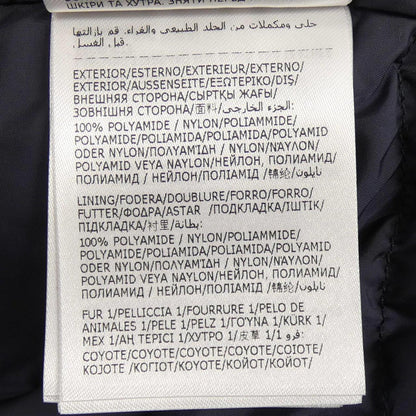 ШКІРИ ТА ХУТРА. ЗНЯТИ ПЕРЕД
حلى ومكملات من الجلد الطبيعي والفراء. قم بإزالتها
قبل الغسل.
EXTERIOR/ESTERNO/EXTERIEUR/EXTERNO/
EXTERIOR/AUSSENSEITE/ΕΞΩΤΕΡΙΚΟ/DIŞ/
ВНЕШНЯЯ СТОРОНА/СЫРТҚЫ ЖАҒЫ/
ЗОВНІШНЯ СТОРОНА/面料/الجزء الخارجي:
100% POLYAMIDE / NYLON/POLIAMMIDE/
POLYAMIDE/POLIAMIDA/POLIAMIDA/POLYAMID
ODER NYLON/ΠΟΛΥΑΜΙΔΗ / NYLON/ΝΑΥΛΟΝ/
POLYAMID VEYA NAYLON/НЕЙЛОН, ПОЛИАМИД/
ПОЛИАМИД / НЕЙЛОН/ПОЛІАМІД /锦纶/نايلون
LINING/FODERA/DOUBLURE/FORRO/FORRO/
FUTTER/ΦΟΔΡΑ/ASTAR /ПОДКЛАДКА/ІШТІК/
ПІДКЛАДКА/衬里/بطانة:
100% POLYAMIDE / NYLON/POLIAMMIDE/
POLYAMIDE/POLIAMIDA/POLIAMIDA/POLYAMID
ODER NYLON/ΠΟΛΥΑΜΙΔΗ / NYLON/ΝΑΥΛΟΝ/
POLYAMID VEYA NAYLON/НЕЙЛОН, ПОЛИАМИД/
ПОЛИАМИД / НЕЙЛОН/ПОЛІАМІД /锦纶/نايلون
FUR 1/PELLICCIA 1/FOURRURE 1/PELO DE
ANIMALES 1/PELE 1/PELZ 1/ΓΟΥΝΑ 1/KÜRK 1/
МЕХ 1/АҢ ТЕРІСІ 1/ХУТРО 1/皮草 1/فرو 1:
COYOTE/COYOTE/COYOTE/COYOTE/COIOTE/
KOJOTE /ΚΟΓΙΟΤ/KOYOTE/КОЙОТ/КОЙОТ/